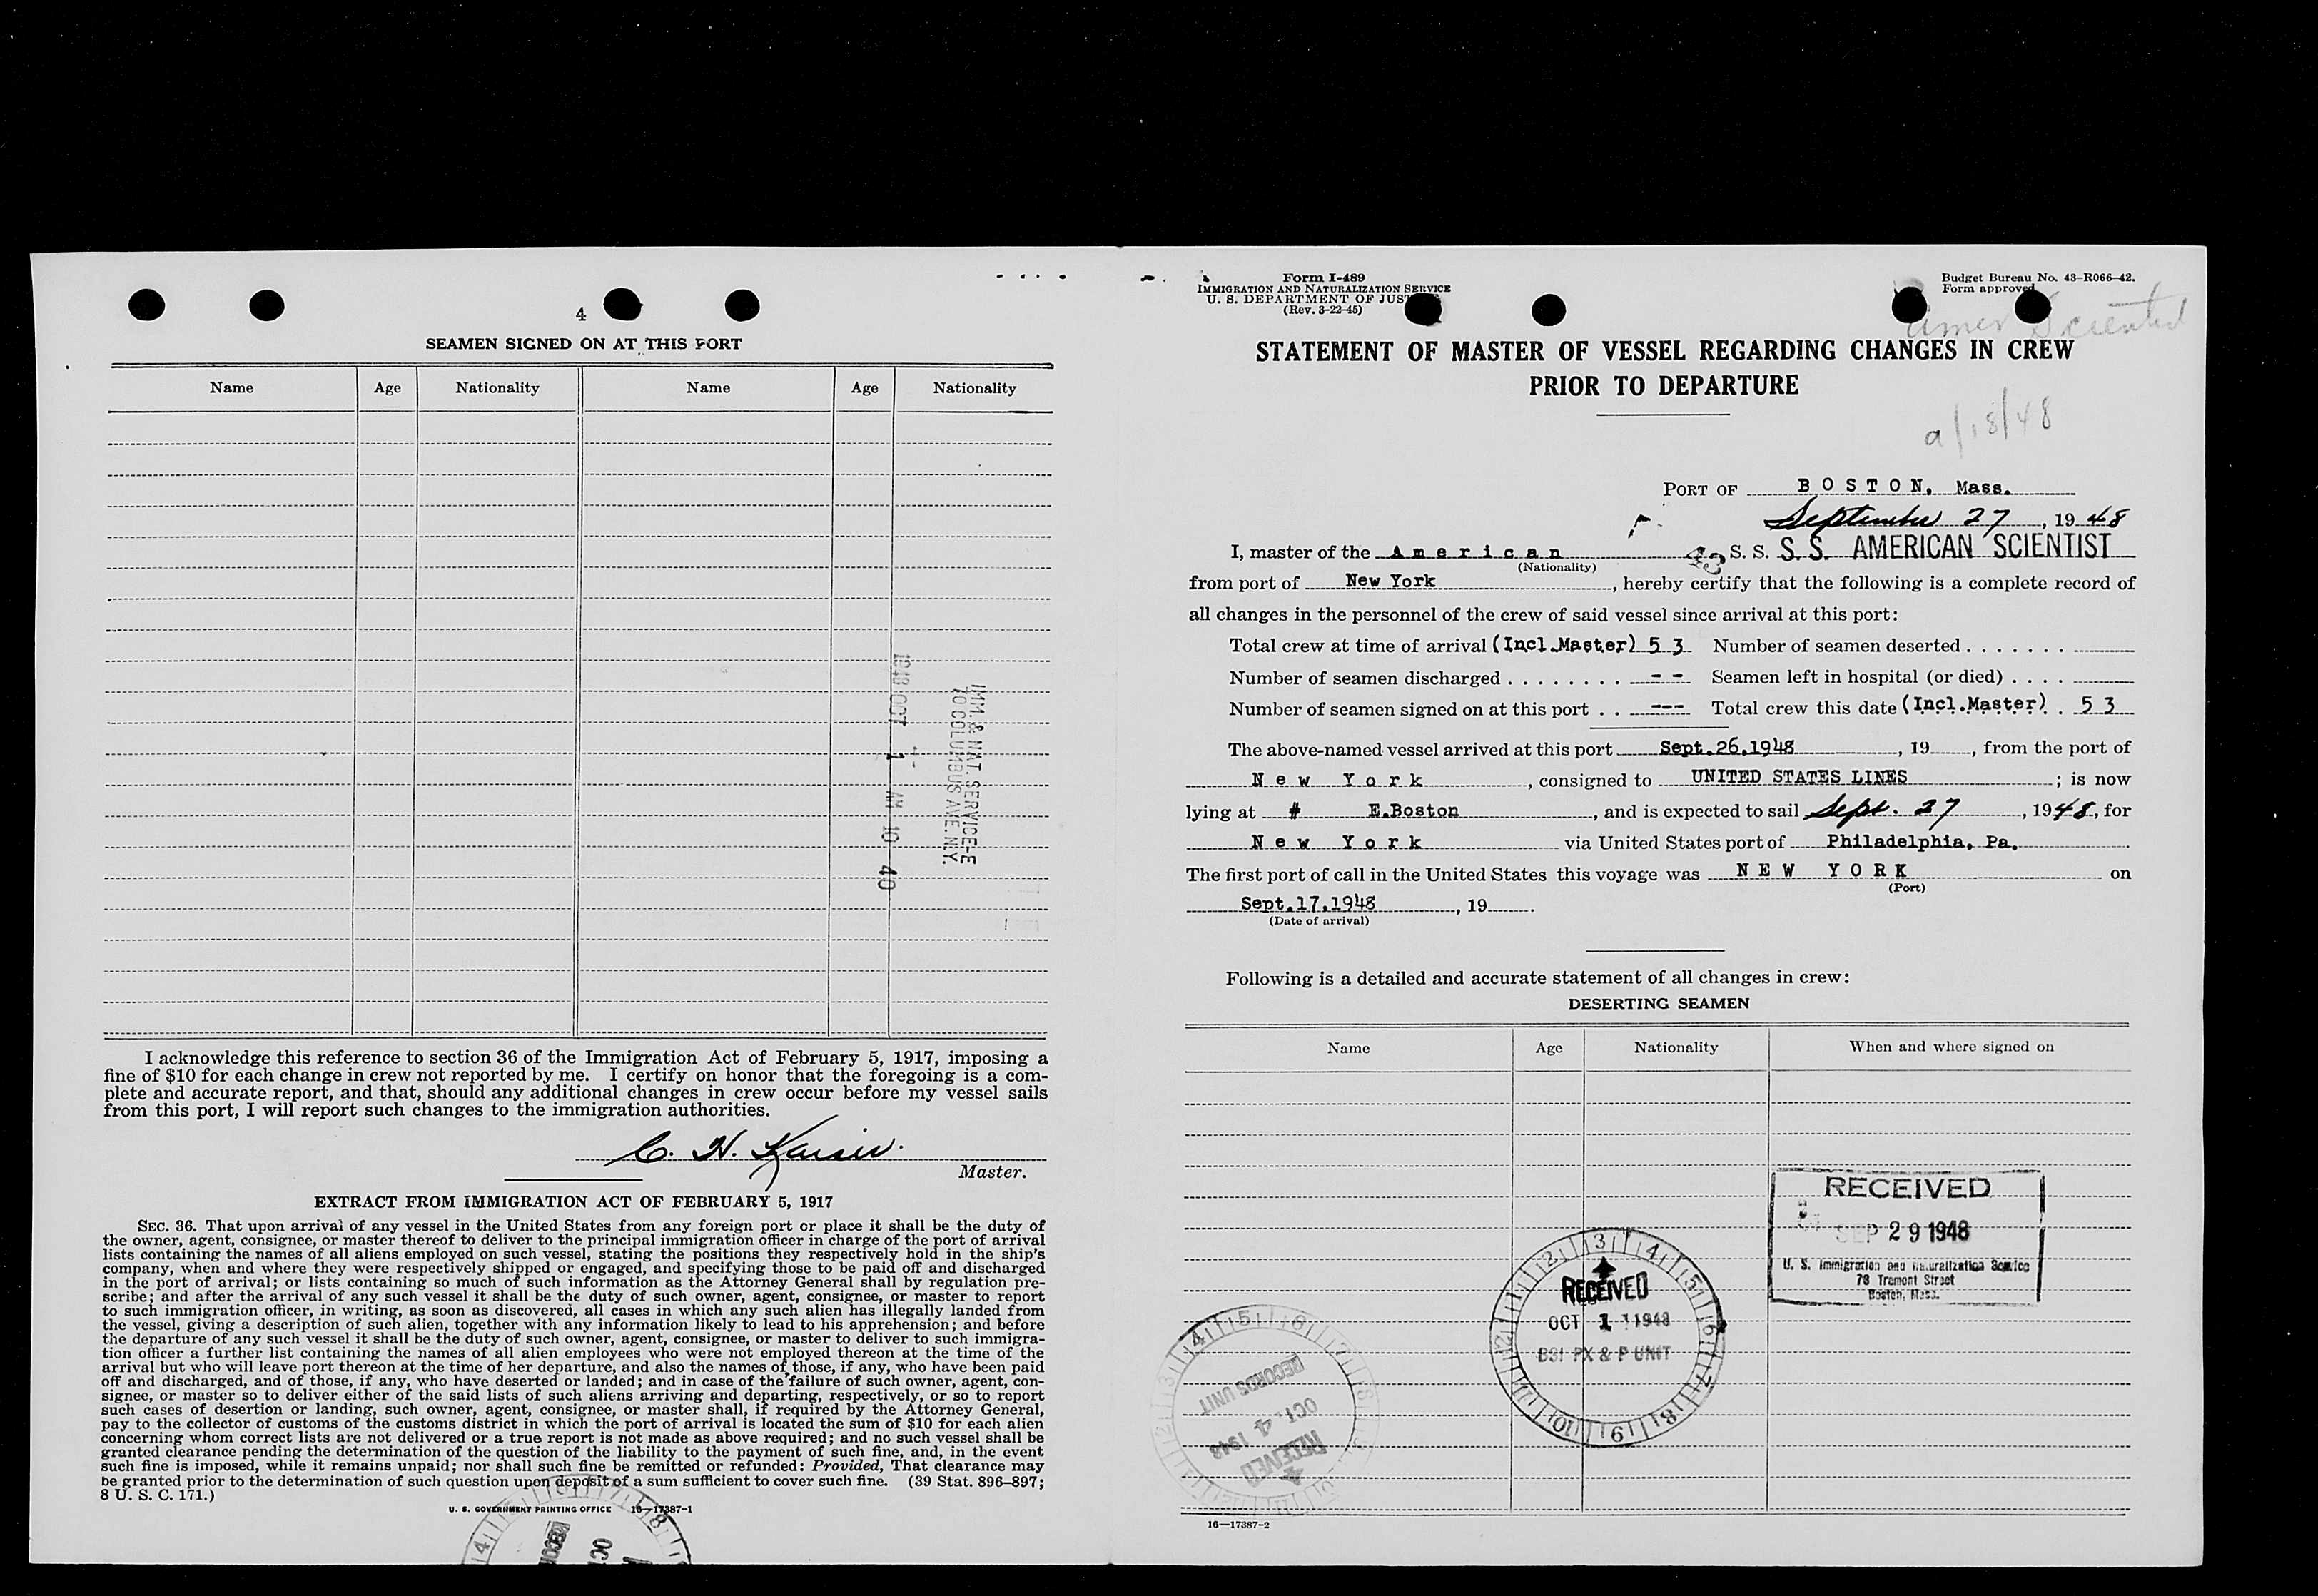 4
SEAMEN SIGNED ON AT THIS PORT
Name Age Nationality Name Age Nationality
1948 OCT 1 AM 10 40
IMM. & NAT. SERVICE-E
70 COLUMBUS AVE. N.Y.
I acknowledge this reference to section 36 of the Immigration Act of February 5, 1917, imposing a
fine of $10 for each change in crew not reported by me. I certify on honor that the foregoing is a com-
plete and accurate report, and that, should any additional changes in crew occur before my vessel sails
from this port, I will report such changes to the immigration authorities.
C. H. Kaiser.
Master.
EXTRACT FROM IMMIGRATION ACT OF FEBRUARY 5, 1917
SEC. 36. That upon arrival of any vessel in the United States from any foreign port or place it shall be the duty of
the owner, agent, consignee, or master thereof to deliver to the principal immigration officer in charge of the port of arrival
lists containing the names of all aliens employed on such vessel, stating the positions they respectively hold in the ship's
company, when and where they were respectively shipped or engaged, and specifying those to be paid off and discharged
in the port of arrival; or lists containing so much of such information as the Attorney General shall by regulation pre-
scribe; and after the arrival of any such vessel it shall be the duty of such owner, agent, consignee, or master to report
to such immigration officer, in writing, as soon as discovered, all cases in which any such alien has illegally landed from
the vessel, giving a description of such alien, together with any information likely to lead to his apprehension; and before
the departure of any such vessel it shall be the duty of such owner, agent, consignee, or master to deliver to such immigra-
tion officer a further list containing the names of all alien employees who were not employed thereon at the time of the
arrival but who will leave port thereon at the time of her departure, and also the names of those, if any, who have been paid
off and discharged, and of those, if any, who have deserted or landed; and in case of the failure of such owner, agent, con-
signee, or master so to deliver either of the said lists of such aliens arriving and departing, respectively, or so to report
such cases of desertion or landing, such owner, agent, consignee, or master shall, if required by the Attorney General,
pay to the collector of customs of the customs district in which the port of arrival is located the sum of $10 for each alien
concerning whom correct lists are not delivered or a true report is not made as above required; and no such vessel shall be
granted clearance pending the determination of the question of the liability to the payment of such fine, and, in the event
such fine is imposed, while it remains unpaid; nor shall such fine be remitted or refunded: Provided, That clearance may
be granted prior to the determination of such question upon deposit of a sum sufficient to cover such fine. (39 Stat. 896–897;
8 U. S. C. 171.)
U. S. GOVERNMENT PRINTING OFFICE 16—17387-1
Form I-489
IMMIGRATION AND NATURALIZATION SERVICE
U. S. DEPARTMENT OF JUS
(Rev. 3-22-45)
Budget Bureau No. 43-R066-42.
Form approved
Amer Scientist
STATEMENT OF MASTER OF VESSEL REGARDING CHANGES IN CREW
PRIOR TO DEPARTURE
a/18/48
PORT OF BOSTON, Mass.
September 27, 1948
I, master of the American 43 S. S. S.S. AMERICAN SCIENTIST
(Nationality)
from port of New York, hereby certify that the following is a complete record of
all changes in the personnel of the crew of said vessel since arrival at this port:
Total crew at time of arrival (Incl.Master) 53 Number of seamen deserted . . . . . . .
Number of seamen discharged . . . . . . . . -- Seamen left in hospital (or died) . . . .
Number of seamen signed on at this port . . --- Total crew this date (Incl.Master) . 53
The above-named vessel arrived at this port Sept.26,1948, 19, from the port of
New York, consigned to UNITED STATES LINES; is now
lying at # E.Boston, and is expected to sail Sept. 27, 1948, for
New York via United States port of Philadelphia, Pa.
The first port of call in the United States this voyage was NEW YORK on
(Port)
Sept.17,1948, 19.
(Date of arrival)
Following is a detailed and accurate statement of all changes in crew:
DESERTING SEAMEN
Name Age Nationality When and where signed on
RECEIVED
SEP 29 1948
U. S. Immigration and Naturalization Service
73 Tremont Street
Boston, Mass.
RECEIVED
OCT 1 1948
BSI PX & P UNIT
RECORDS UNIT
OCT 4 1948
RECEIVED
16—17387-2